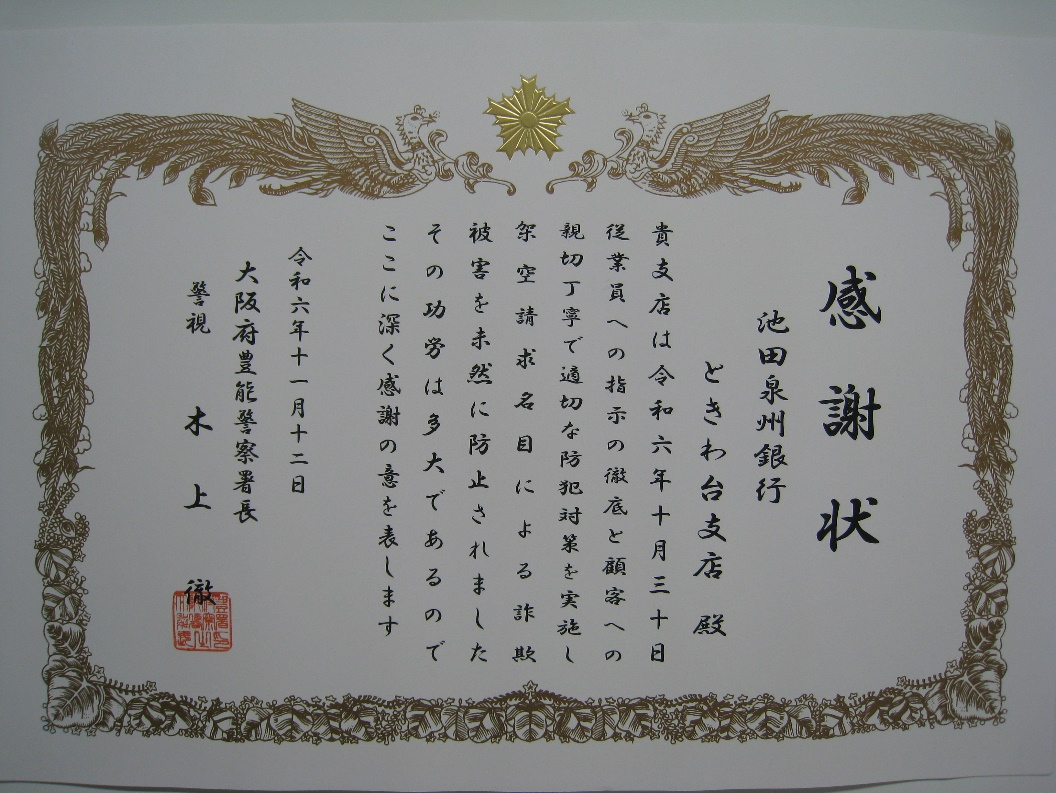 感謝状
池田泉州銀行
ときわ台支店 殿
貴支店は令和六年十月三十日
従業員への指示の徹底と顧客への
親切丁寧で適切な防犯対策を実施し
架空請求名目による詐欺
被害を未然に防止されました
その功労は多大であるので
ここに深く感謝の意を表します
令和六年十一月十二日
大阪府豊能警察署長
警視 木上 徹